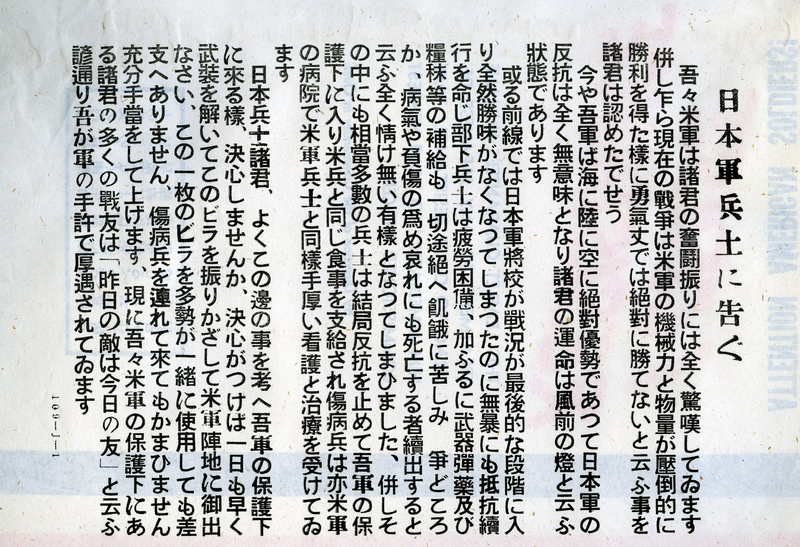 日本軍兵士に告ぐ
吾々米軍は諸君の奮鬪振りには全く驚嘆してゐます
併し乍ら現在の戰爭は米軍の機械力と物量が壓倒的に
勝利を得た樣に勇氣丈では絕對に勝てないと云ふ事を
諸君は認めたでせう
今や吾軍は海に陸に空に絕對優勢であつて日本軍の
反抗は全く無意味となり諸君の運命は風前の燈と云ふ
狀態であります
或る前線では日本軍將校が戰況が最後的な段階に入
り全然勝味がなくなつてしまつたのに無暴にも抵抗續
行を命じ部下兵士は疲勞困憊、加ふるに武器彈藥及び
糧秣等の補給も一切途絕へ飢餓に苦しみ 爭どころ
か、病氣や負傷の爲め哀れにも死亡する者續出すると
云ふ全く情け無い有樣となつてしまひました、併しそ
の中にも相當多數の兵士は結局反抗を止めて吾軍の保
護下に入り米兵と同じ食事を支給され傷病兵は亦米軍
の病院で米軍兵士と同樣手厚い看護と治療を受けてゐ
ます
日本兵士諸君、よくこの邊の事を考へ吾軍の保護下
に來る樣、決心しませんか、決心がつけば一日も早く
武裝を解いてこのビラを振りかざして米軍陣地に御出
なさい、この一枚のビラを多勢が一緒に使用しても差
支へありません、傷病兵を連れて來てもかまひません
充分手當をして上げます、現に吾々米軍の保護下にあ
る諸君の多くの戰友は「昨日の敵は今日の友」と云ふ
諺通り吾が軍の手許で厚遇されてゐます
109-J-1
ATTENTION AMERICAN SOLDIERS!